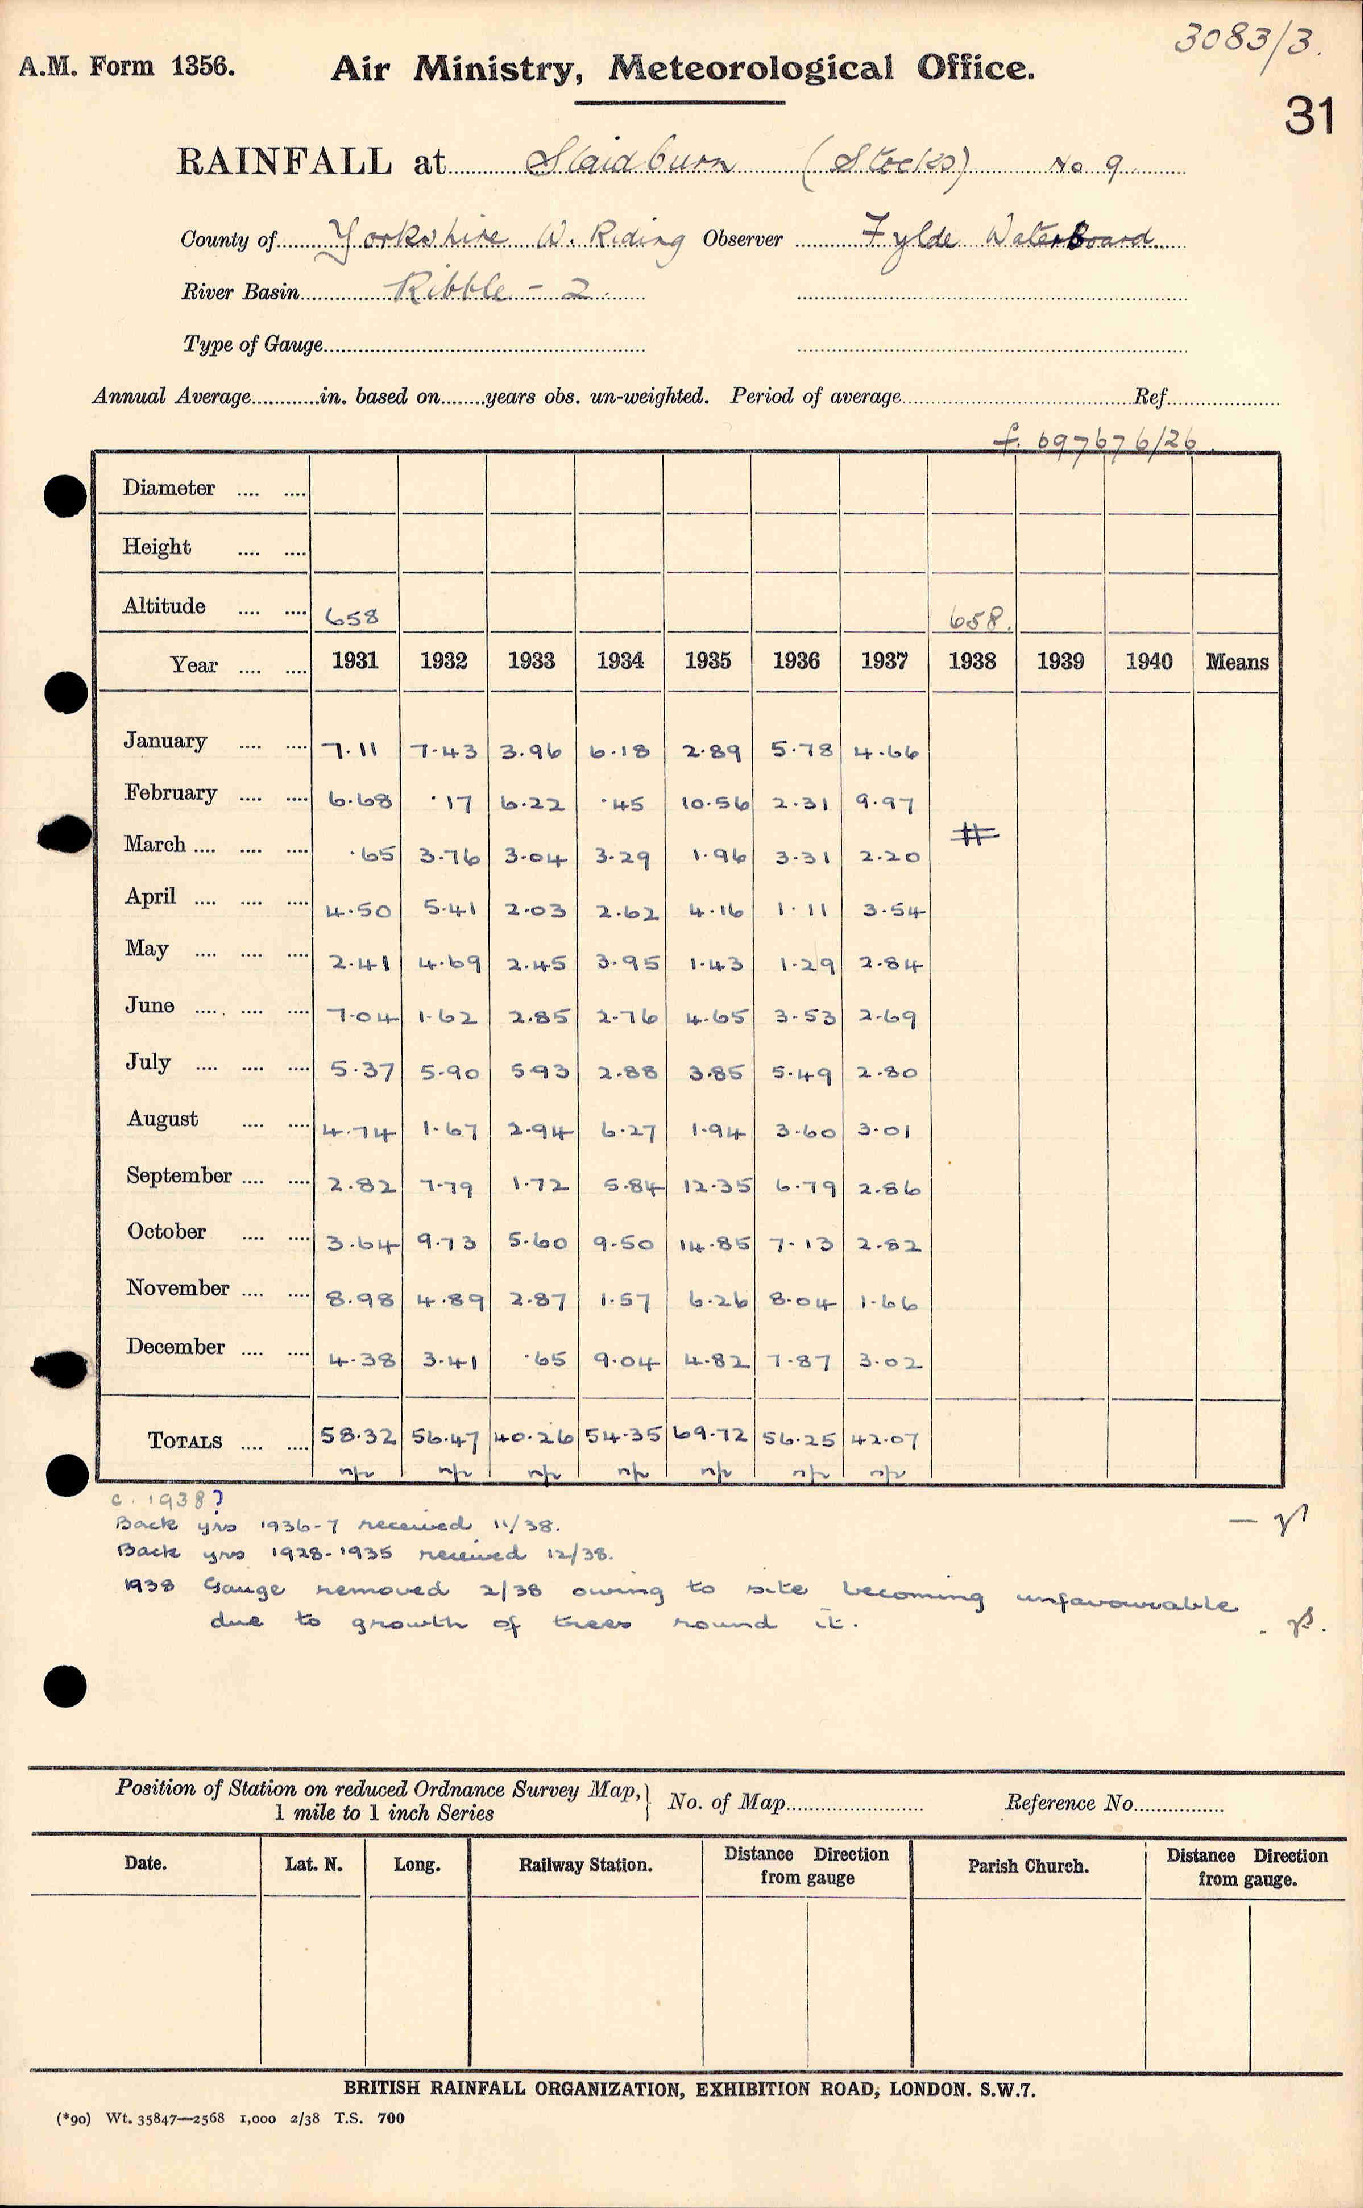 3083/3.
A.M. Form 1356. Air Ministry, Meteorological Office.
31
RAINFALL at Slaidburn (Stocks) No 9
County of Yorkshire W. Riding Observer Fylde Waterboard
River Basin Ribble - 2
Type of Gauge
Annual Average in. based on years obs. un-weighted. Period of average Ref
f. 697676/26
Diameter
Height
Altitude 658 658.
Year 1931 1932 1933 1934 1935 1936 1937 1938 1939 1940 Means
January 7.11 7.43 3.96 6.18 2.89 5.78 4.66
February 6.68 .17 6.22 .45 10.56 2.31 9.97
March .65 3.76 3.04 3.29 1.96 3.31 2.20
April 4.50 5.41 2.03 2.62 4.16 1.11 3.54
May 2.41 4.69 2.45 3.95 1.43 1.29 2.84
June 7.04 1.62 2.85 2.76 4.65 3.53 2.69
July 5.37 5.90 593 2.88 3.85 5.49 2.80
August 4.74 1.67 2.94 6.27 1.94 3.60 3.01
September 2.82 7.79 1.72 5.84 12.35 6.79 2.86
October 3.64 9.73 5.60 9.50 14.85 7.13 2.82
November 8.98 4.89 2.87 1.57 6.26 8.04 1.66
December 4.38 3.41 .65 9.04 4.82 7.87 3.02
TOTALS 58.32 56.47 40.26 54.35 69.72 56.25 42.07
c. 1938?
Back yrs 1936-7 received 11/38.
Back yrs 1928-1935 received 12/38.
1938 Gauge removed 2/38 owing to site becoming unfavourable
due to growth of trees round it.
Position of Station on reduced Ordnance Survey Map, 1 mile to 1 inch Series No. of Map Reference No.
Date. Lat. N. Long. Railway Station. Distance Direction from gauge Parish Church. Distance Direction from gauge.
BRITISH RAINFALL ORGANIZATION, EXHIBITION ROAD, LONDON. S.W.7.
(*90) Wt. 35847—2568 1,000 2/38 T.S. 700